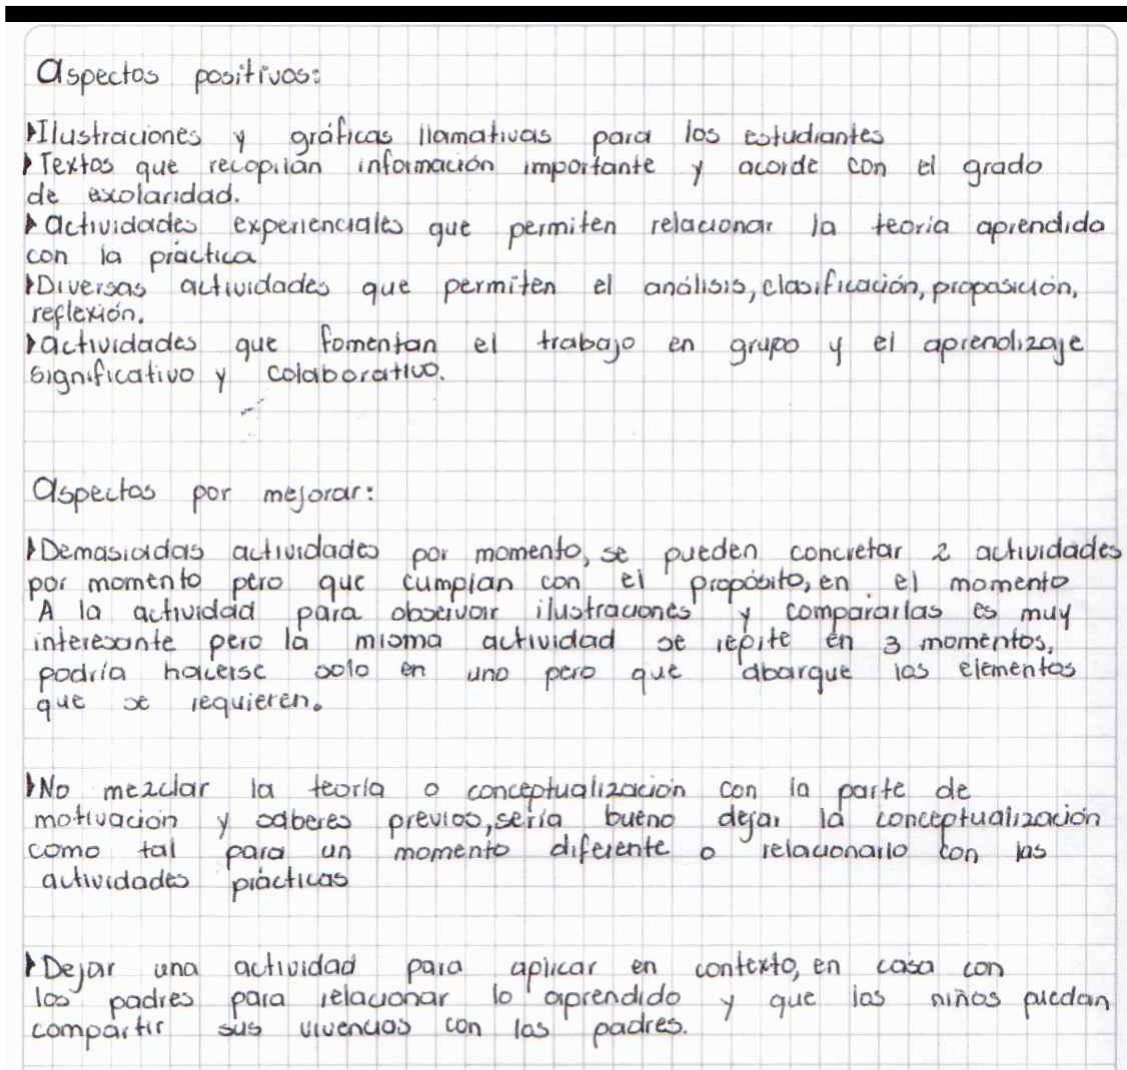 Aspectos positivos:
Ilustraciones y gráficas llamativas para los estudiantes
Textos que recopilan información importante y acorde con el grado
de exolaridad.
Actividades experienciales que permiten relacionar la teoría aprendida
con la práctica
Diversas actividades que permiten el análisis, clasificación, proposición,
reflexión.
actividades que fomentan el trabajo en grupo y el aprendizaje
significativo y colaborativo.
Aspectos por mejorar:
Demasiadas actividades por momento, se pueden concretar 2 actividades
por momento pero que cumplan con el propósito, en el momento
A la actividad para observar ilustraciones y compararlas es muy
interesante pero la misma actividad se repite en 3 momentos,
podría hacerse solo en uno pero que abarque los elementos
que se requieren.
No mezclar la teoría o conceptualización con la parte de
motivación y saberes previos, sería bueno dejar la conceptualización
como tal para un momento diferente o relacionarlo con las
actividades prácticas
Dejar una actividad para aplicar en contexto, en casa con
los padres para relacionar lo aprendido y que los niños puedan
compartir sus vivencias con los padres.